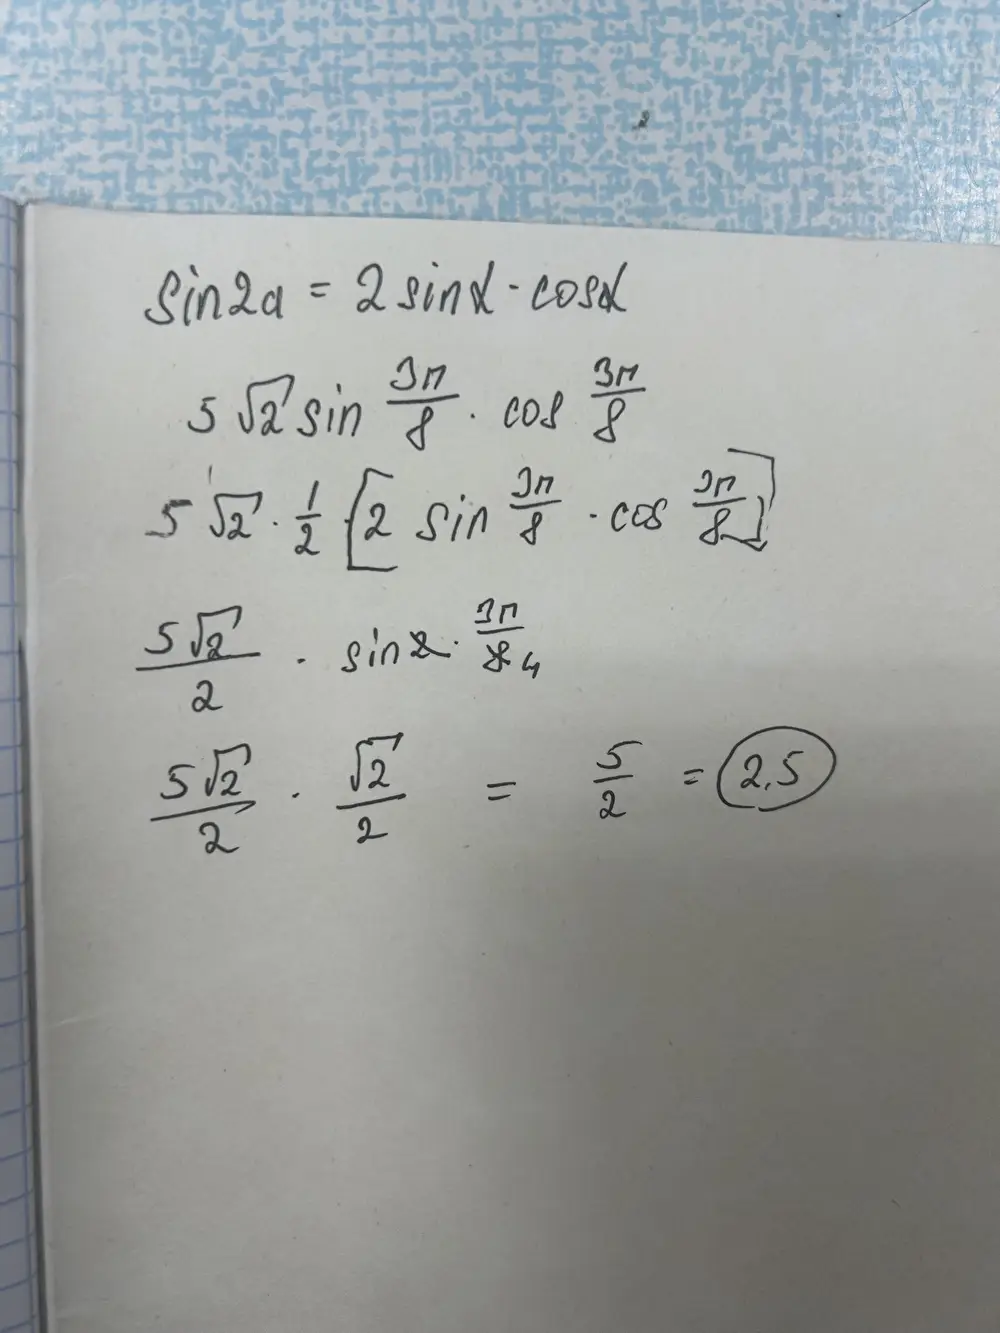 sin2a = 2 sinα · cosα
5 √2 sin 3π/8 · cos 3π/8
5 √2 · 1/2 · [2 sin 3π/8 · cos 3π/8]
5√2/2 · sin 2 · 3π/8 4
5√2/2 · √2/2 = 5/2 = 2,5